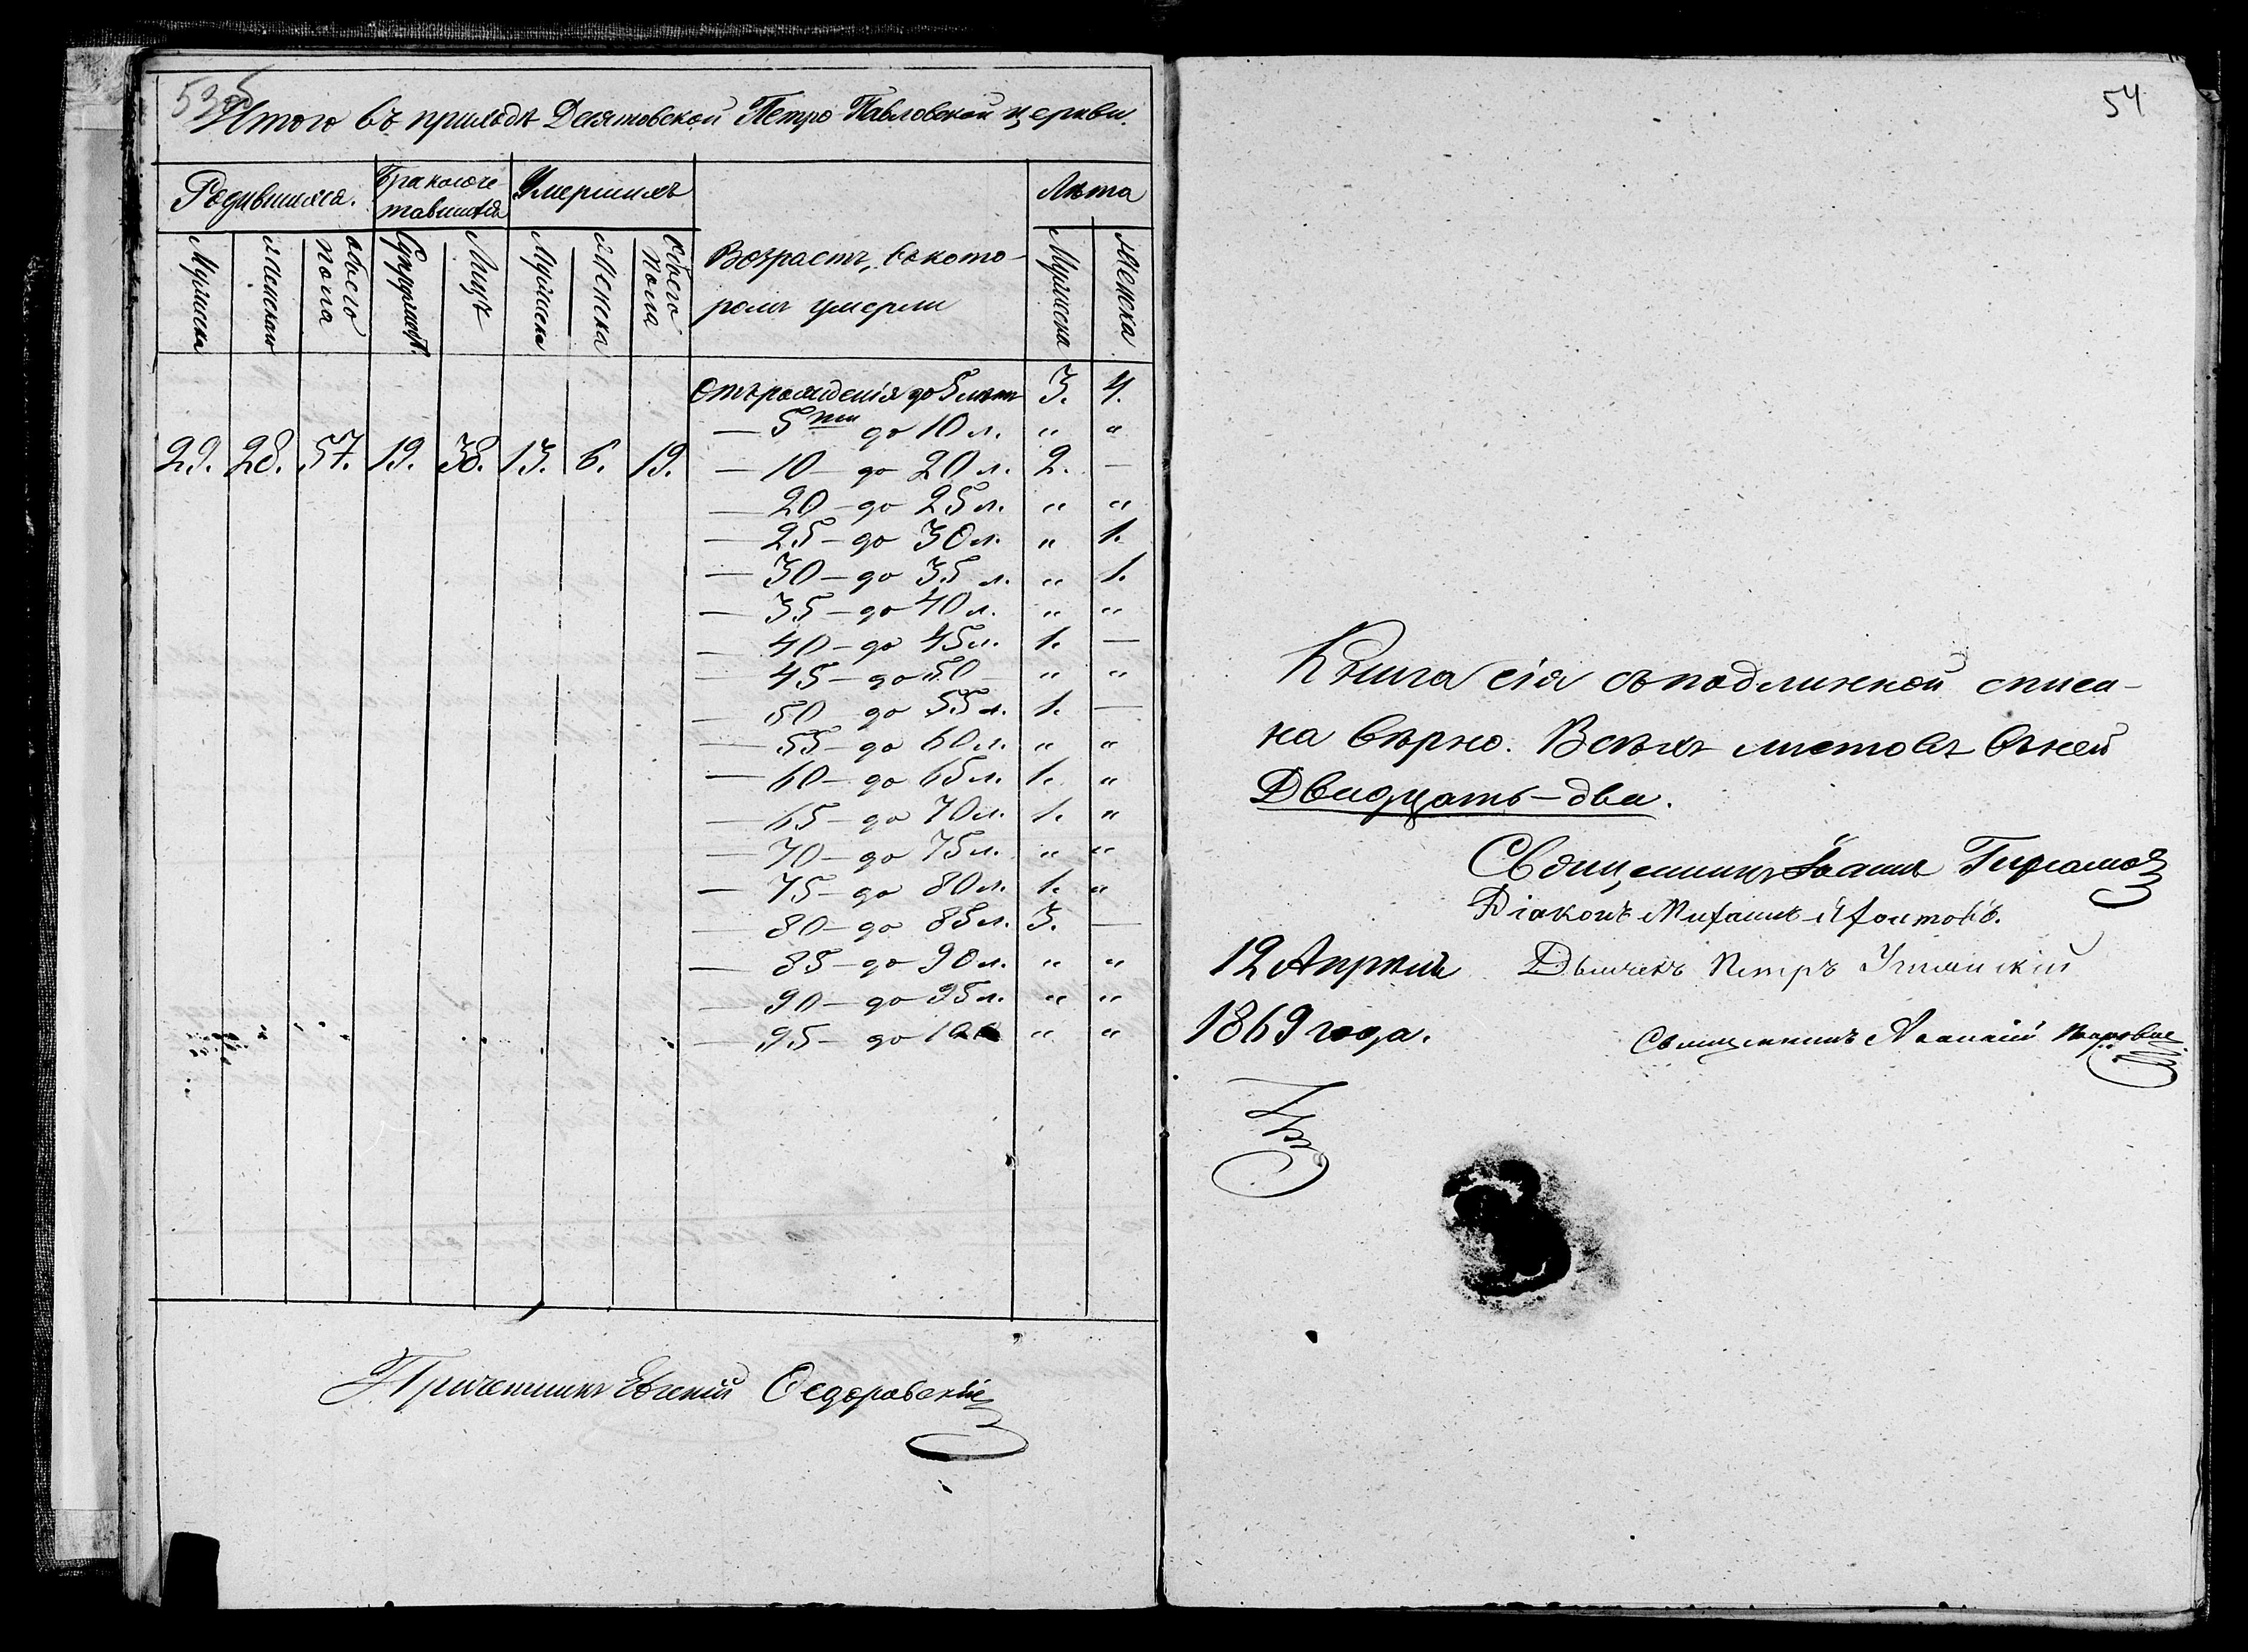 53об
Итого въ приходѣ Десятовской Петро-Павловской церкви.
Родившихся. Бракосоче Умершихъ Лѣта
тавшихся
Мужеска Женскаго обоего пола Супружест. Лицъ Мужеска Женска Обоего пола Возрастъ, въ кото- Мужеска Женска
ромъ умерли
Отъ рожденія до 5 лѣтъ 3. 4.
— 5ти до 10 л. " "
29. 28. 57. 19. 38. 13. 6. 19. — 10 — до 20 л. 2. —
— 20 — до 25 л. " "
— 25 — до 30 л. " 1.
— 30 — до 35 л. " 1.
— 35 — до 40 л. " "
— 40 — до 45 л. 1. —
— 45 — до 50 — " "
— 50 до 55 л. 1. —
— 55 — до 60 л. " "
— 60 — до 65 л. 1. "
— 65 — до 70 л. 1. "
— 70 — до 75 л. " "
— 75 — до 80 л. 1. "
— 80 — до 85 л. 3. —
— 85 — до 90 л. " "
— 90 — до 95 л. " "
— 95 — до 100 " "
Причетникъ Евгеній Ѳедоровскій
54
Книга сія съ подлинной списа-
на вѣрно. Всѣхъ листовъ въ ней
Двадцать-два.
Священникъ Іоаннъ
Діаконъ Михаилъ
12 Апрѣля Дьячекъ Петръ
1869 года.
Священникъ